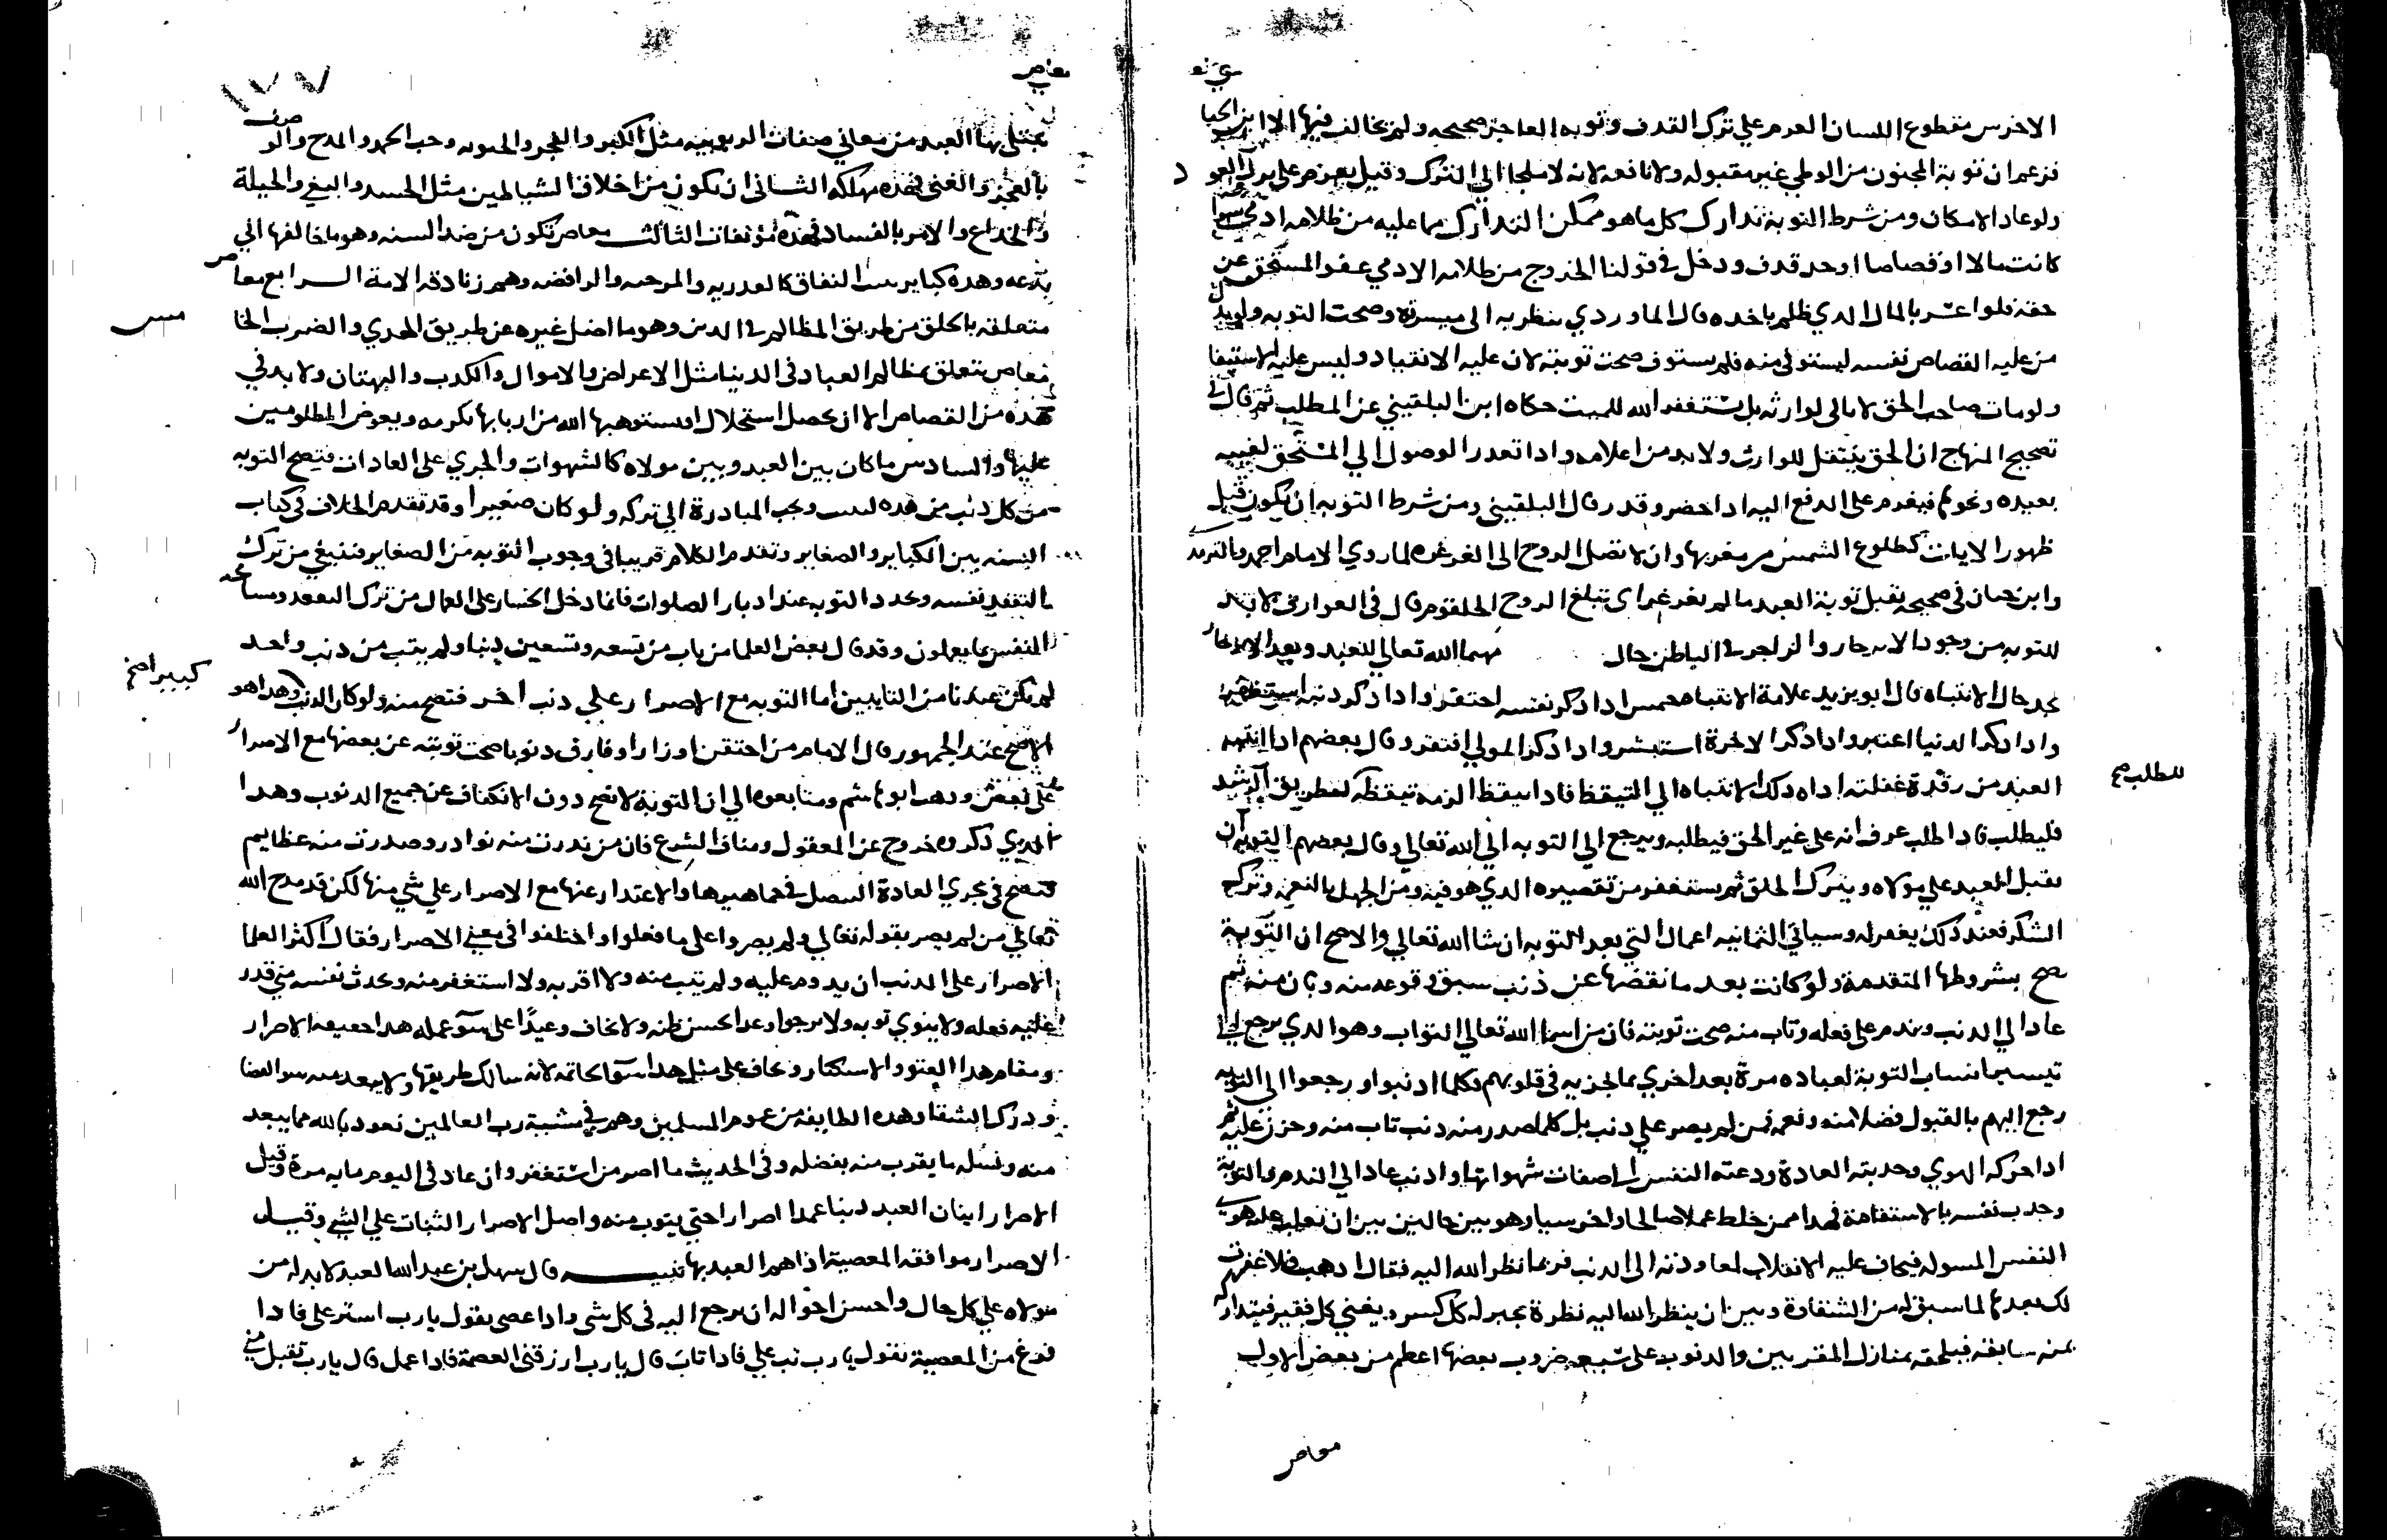 الاخرس مقطوع اللسان العزم علي ترك القدف وتوبه العاجز صحيحه ولم يخالف فيها الا ابن الجبا
فزعم ان توبة المجنون من الوطي غير مقبوله ولا نافعه لانه لا ملجا الي الترك وقيل يعزم علي ترك العو د
ولو عاد الامكان ومن شرط التوبه تدارك كل ما هو ممكن التدارك مما عليه من ظلامه ادمي سوا
كانت مالا او قصاصا او حد قدف ودخل في قولنا الخروج من ظلامه الادمي عفو المستحق عن
حقه فلو اعسر بالمال الدي ظلم باخده قال الماوردي ينظر به الى ميسرة وصحت التوبه ولو بدل
من عليه القصاص نفسه ليستوفي منه فلم يستوف صحت توبته لان عليه الانقياد وليس عليه الاستيفا
ولو مات صاحب الحق لا يالى لوارثه بل يستغفر الله للميت حكاه ابن البلقيني عن المطلب ثم قال في
تصحيح المنهاج ان الحق ينتقل للوارث ولا بد من اعلامه وادا تعدر الوصول الي المستحق لغيبه
بعيده ونحوها فيعزم على الدفع اليه ادا حضر وقدر قال البلقيني ومن شرط التوبه ان يكون قبل
ظهور الايات كطلوع الشمس من مغربها وان لا تصل الروح الى الغرغره لما روي الامام احمد والترمد
وابن حبان في صحيحه يقبل توبة العبد ما لم يغرغر اي تبلغ الروح الحلقوم قال في العوارف لا بد
للتوبه من وجود الانزجار والزاجر في الباطن حال مهما الله تعالي للعبد وبعد الانزجار
يجد حال الانتباه قال ابو يزيد علامة الانتباه خمس ادا دكر نفسه احتقر وادا دكر دنبه استغفر
وادا دكر الدنيا اعتبر وادا دكر الاخرة استبشر وادا دكر المولي افتقر وقال بعضهم ادا انتبه
العبد من رقدة غفلته اداه دلك الانتباه الي التيقظ فادا تيقظ الزمه تيقظه لطريق الرشد
للطلب صح
فليطلب فادا طلب عرف انه على غير الحق فيطلبه ويرجع الي التوبه الي الله تعالي وقال بعضهم التوبه ان
يقبل العبد علي مولاه ويترك الخلق ثم يستغفر من تقصيره الدي هو فيه ومن الجهل بالنعم وترك
الشكر فعند دلك يغفر له وسياتي الثمانيه اعمال التي بعد التوبه ان شا الله تعالي والاصح ان التوبة
تصح بشروطها المتقدمة ولو كانت بعد ما نقضها عن ذنب سبق وقوعه منه وبان منه ثم
عاد الي الدنب وندم على فعله وتاب منه صحت توبته فان من اسما الله تعالي التواب وهو الدي يرجع الي
تيسير اسباب التوبة لعباده مرة بعد اخري بما يجريه في قلوبهم فكلما ادنبوا ورجعوا الي التوبه
رجع اليهم بالقبول فضلا منه ونعمه فمن لم يصر علي دنب بل كلما صدر منه دنب تاب منه وحزن عليه ثم
ادا حركه الهوي وجدبته العادة ودعته النفس الي صفات شهواتها وادنب عاد الي الندم والتوبة
وجدب نفسه بالاستقامة فهدا ممن خلط عملا صالحا واخر سيا وهو بين حالين بين ان تغلب عليه هوي
النفس المسوله فيخاف عليه الانقلاب لمعاودته الى الدنب فربما نظر الله اليه فقال ادهب فلا غفرت
لك بعدها لما سبق له من الشقاوة وبين ان ينظر الله اليه نظرة يجبر له كل كسر ويغني كل فقير فيتداركه
بمنه سابقه فيلحقه بمنازل المقربين والدنوب على سبعه ضروب بعضها اعظم من بعض الاول
معاص
١٧٧
يبتلي بها العبد من معاني صفات الربوبيه مثل الكبر والفخر والجبريه وحب الحمد والمدح والوصف
بالعز والغني فهده مهلكه الثاني ان يكون من اخلاق الشياطين مثل الحسد والبغي والحيلة
والخداع والامر بالفساد فهده موبقات الثالث معاص تكون من ضد السنه وهو ما خالفها الي
بدعه وهده كباير منها النفاق كالقدريه والمرجيه والرافضه وهم زنادقة الامة الرابع معاص
متعلقه بالخلق من طريق المظالم في الدين وهو ما اضل غيره عن طريق الهدي والضرب الخامس
معاص يتعلق بمظالم العباد في الدنيا مثل الاعراض والاموال والكدب والبهتان ولا بد في
هده من القصاص الا ان يحصل استحلال او يستوهبها الله من اربابها بكرمه ويعوض المظلومين
عليها والسادس ما كان بين العبد وبين مولاه كالشهوات والجري على العادات فتصح التوبه
من كل دنب من هده الست ويجب المبادرة الي تركه ولو كان صغيرا وقد تقدم الخلاف في كتاب
النسبه بين الكباير والصغاير وتقدم الكلام قريبا في وجوب التوبه من الصغاير فينبغي من ترك
التفقد نفسه ويجدد التوبه عند ادبار الصلوات فانما دخل الخسار على العمال من ترك التفقد ومسامحه
النفس بما يعملون وقد قال بعض العلما من تاب من تسعه وتسعين دنبا ولم يتب من دنب واحد
لم يكن عندنا من التايبين اما التوبه مع الاصرار علي دنب اخر فتصح منه ولو كان الدنب كبيرا صح وهدا هو
الاصح عند الجمهور قال الامام من احتقب اوزارا وقارف دنوبا صحت توبته عن بعضها مع الاصرار
على بعض ودهب ابو هاشم ومتابعوه الي ان التوبة لا تصح دون الانكفاف عن جميع الدنوب وهدا
الدي دكروه خروج عن المعقول ومناف الشرع فان من بدرت منه نوادر وصدرت منه عظايم
فتصح في مجري العادة التنصل في جماهيرها والاعتدار عنها مع الاصرار علي شي منها لكن قد مدح الله
تعالي من لم يصر بقوله تعالي ولم يصروا على ما فعلوا واختلفوا في معني الاصرار فقال اكثر العلما
الاصرار على الدنب ان يدوم عليه ولم يتب منه ولا اقر به ولا استغفر منه ويحدث نفسه متي قدر
عليه فعله ولا ينوي توبه ولا يرجوا وعدا لحسن ظنه ولا يخاف وعيدا على سو عمله هدا حقيقه الاصرار
ومقام هدا العتو والاستكبار ويخاف على مثل هدا سو الخاتمه لانه سالك طريقها ولا يبعد منه سو القضا
ودرك الشقا وهده الطايفه من عموم المسلمين وهم في مشية رب العالمين نعود بالله مما يبعد
منه ونسله ما يقرب منه بفضله وفي الحديث ما اصر من استغفر وان عاد في اليوم مايه مرة وقيل
الاصرار اتيان العبد دنبا عمدا اصرارا حتي يتوب منه واصل الاصرار الثبات علي الشي وقيل
الاصرار موافقه المعصية اذا هم العبد بها تنبيه قال سهل بن عبد الله العبد لا بد له من
مولاه علي كل حال واحسن احواله ان يرجع اليه في كل شي وادا عصى يقول يارب استر على فادا
فرغ من المعصية يقول يا رب تب علي فادا تاب قال يارب ارزقني العصمة فادا عمل قال يارب تقبل مني